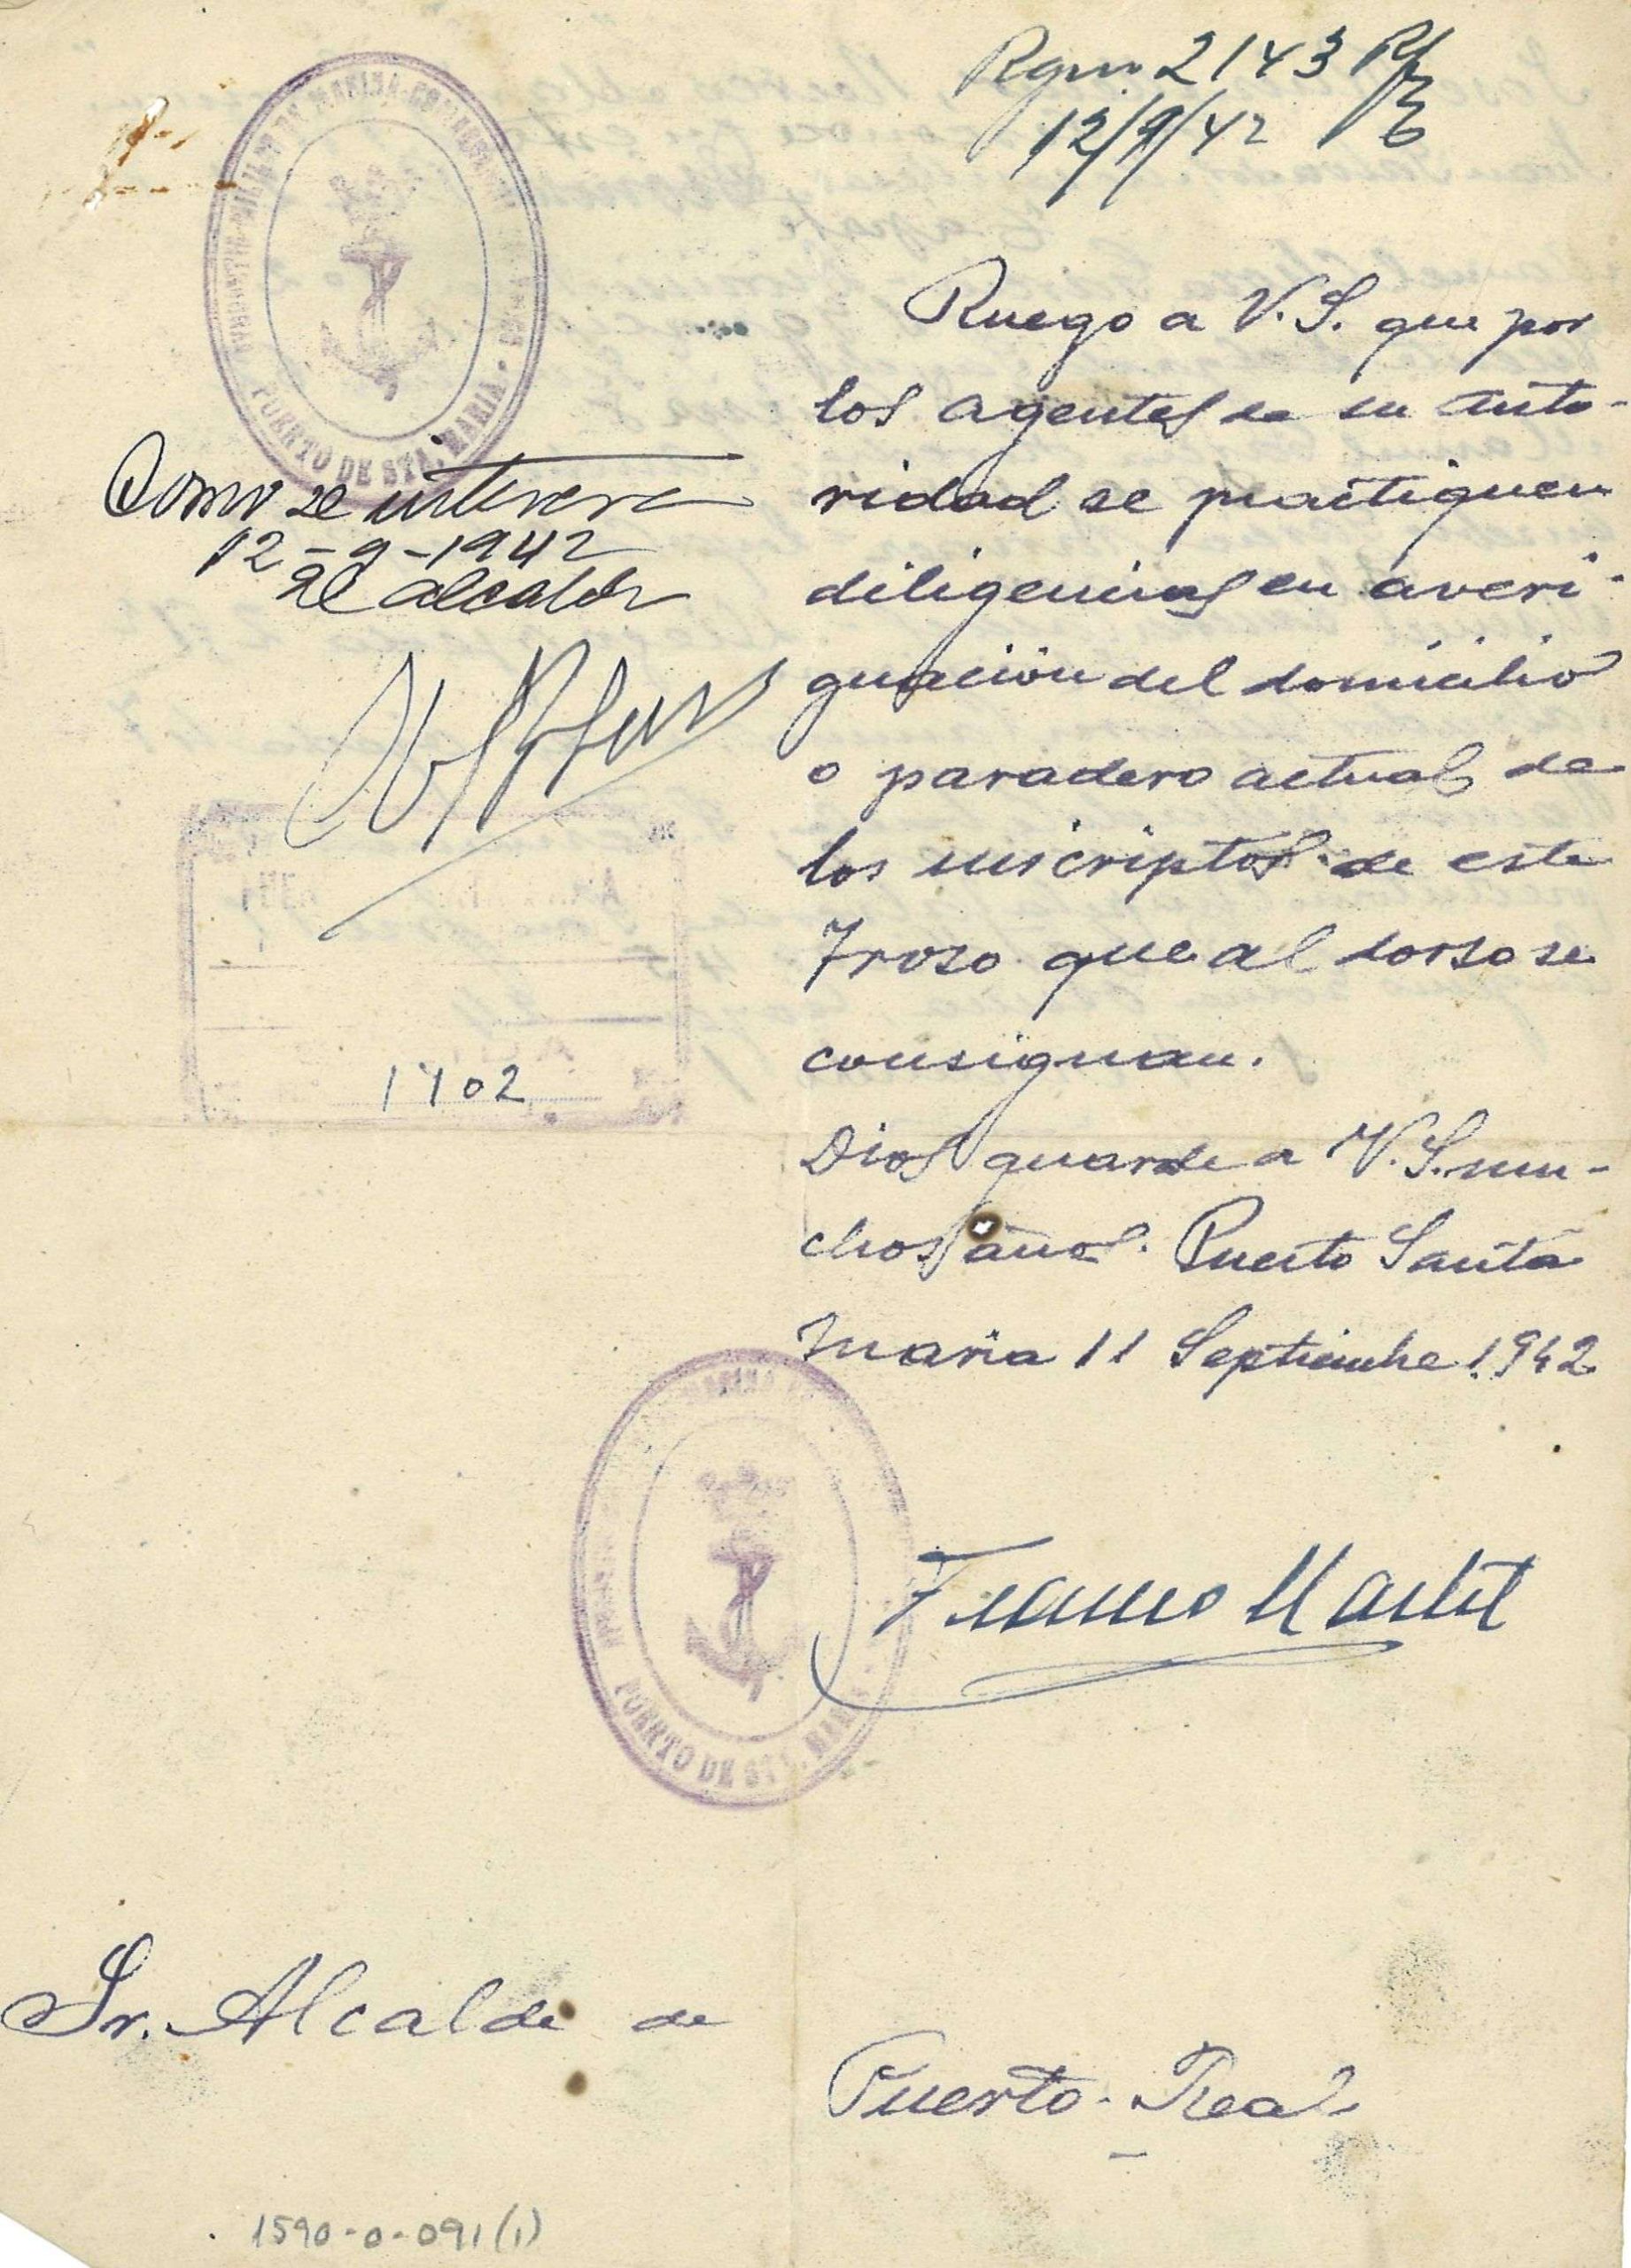 2143
12/9/42
PUERTO DE STA. MARIA
Ruego a V.S. que por
los agentes de su auto-
ridad se practiquen
diligencias en averi-
guación del domicilio
o paradero actual de
los inscriptos de este
Trozo que al dorso se
consignan.
Dios guarde a V.S. mu-
chos años. Puerto Santa
Maria 11 Septiembre 1942
Como se interesa
12-9-1942
El alcalde
1702
PUERTO DE STA. MARIA
Sr. Alcalde de
Puerto-Real
1590-0-091(1)